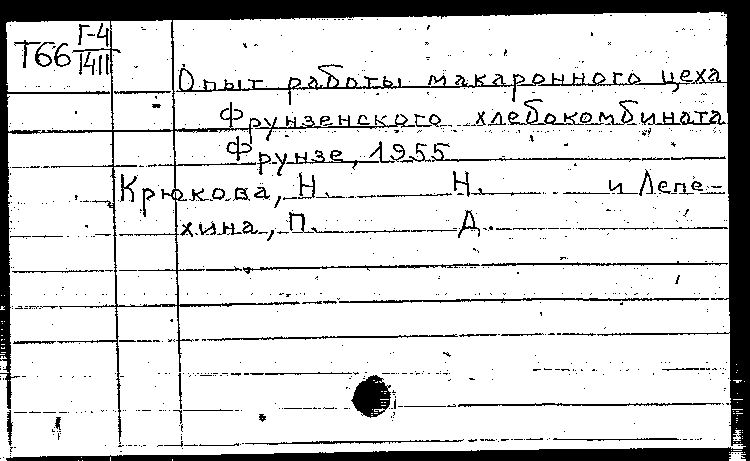 Т66 Г-4
1411
Опыт работы макаронного цеха
Фрунзенского хлебокомбината
Фрунзе, 1955
Крюкова, Н. Н. и Лепе-
хина, П. Д.
1